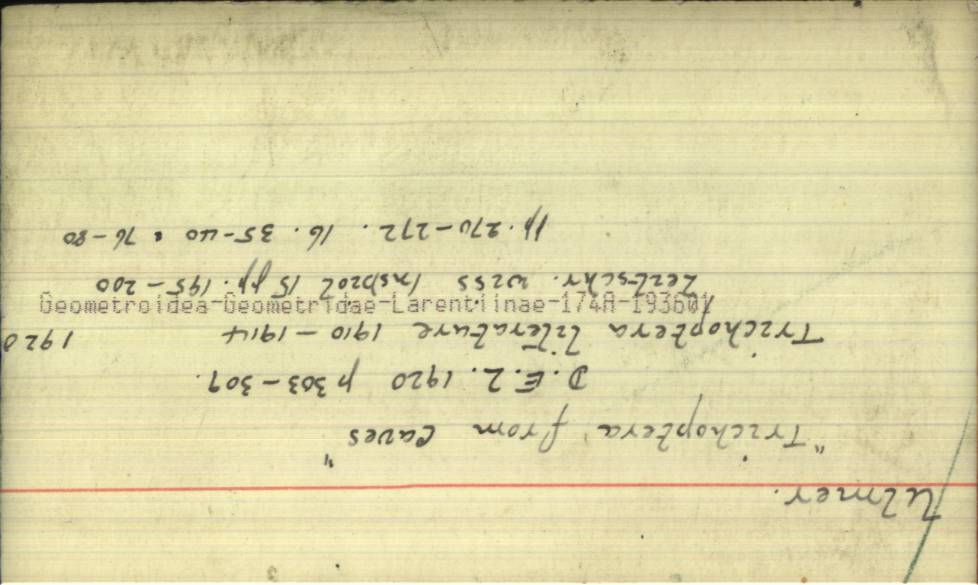 Ulmer.
"Trichoptera from caves"
D. E. Z. 1920 p 303-309.
Trichoptera literature 1910-1914 1920
Zeitschr. wiss Insbiol 15 pp. 195-200
pp. 270-272. 16. 35-40 & 76-80
Geometroidea-Geometridae-Larentiinae-174A-193601